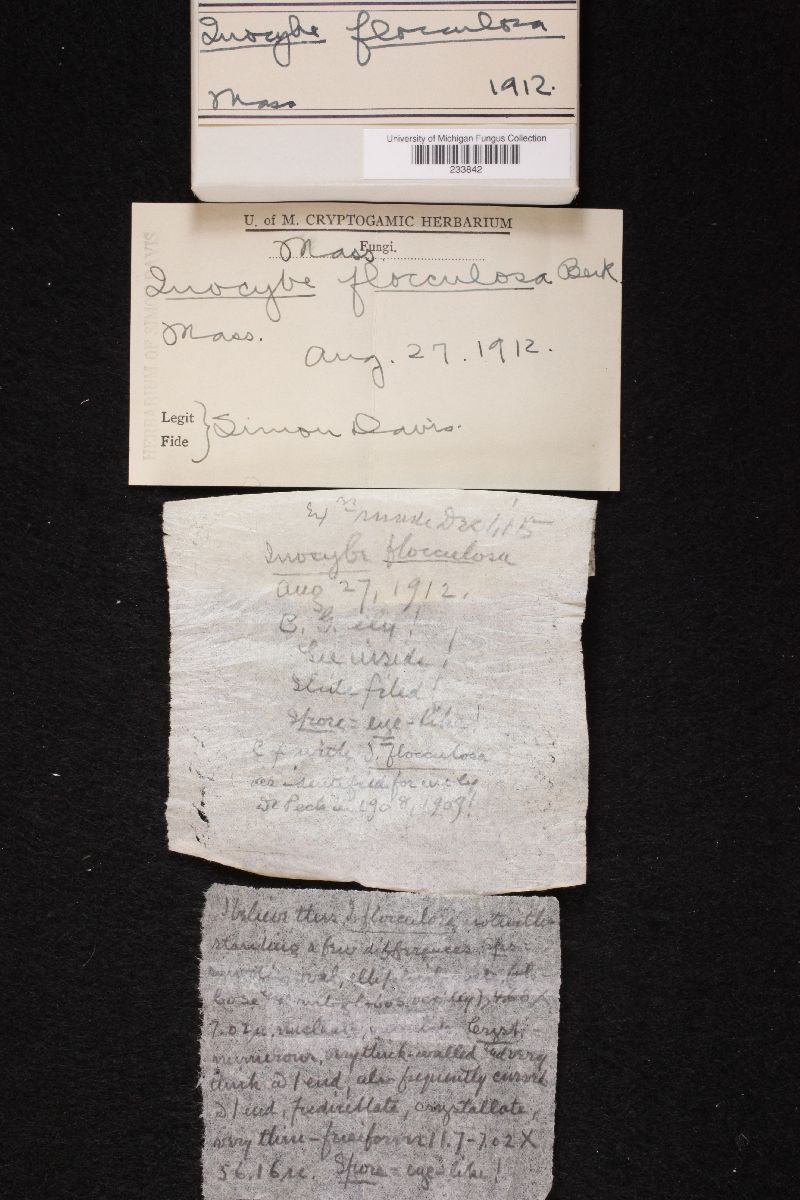 Inocybe flocculosa
Mass 1912.
University of Michigan Fungus Collection
233842
U. of M. CRYPTOGAMIC HERBARIUM
Fungi.
Mass.
Inocybe flocculosa Berk.
Mass.
Aug. 27. 1912.
Legit
Fide
Simon Davis.
HERBARIUM OF SIMON DAVIS
Dec 1, 15
Inocybe flocculosa
Aug 27, 1912.
See inside!
Slide filed!
Spore = eye-like!
Cf with I. flocculosa
as identified for me by
Dr Peck in 1908, 1909!
I believe this I. flocculosa notwith-
standing a few differences,
7.02µ, nucleate, Cyst.
numerous, very thick-walled & very
thick @ 1 end, also frequently curved
@ 1 end, pedicellate, crystallate,
very thin - fusiform 11.7-7.02 X
56.16µ. Spore = eye-like!